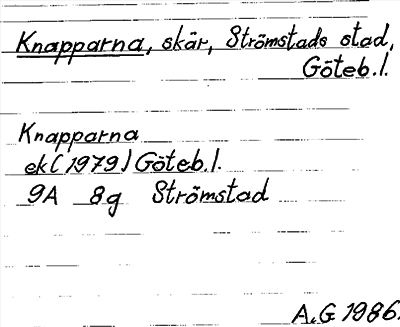 Knapparna, skär, Strömstads stad,
Göteb.l.
Knapparna
ek (1979) Göteb.l.
9A 8g Strömstad
A.G 1986.